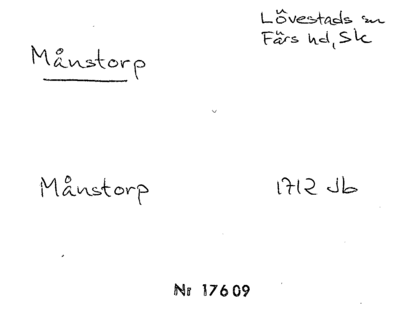 Lövestads sn
Färs hd, Sk
Månstorp
Månstorp 1712 Jb
Nr 17609